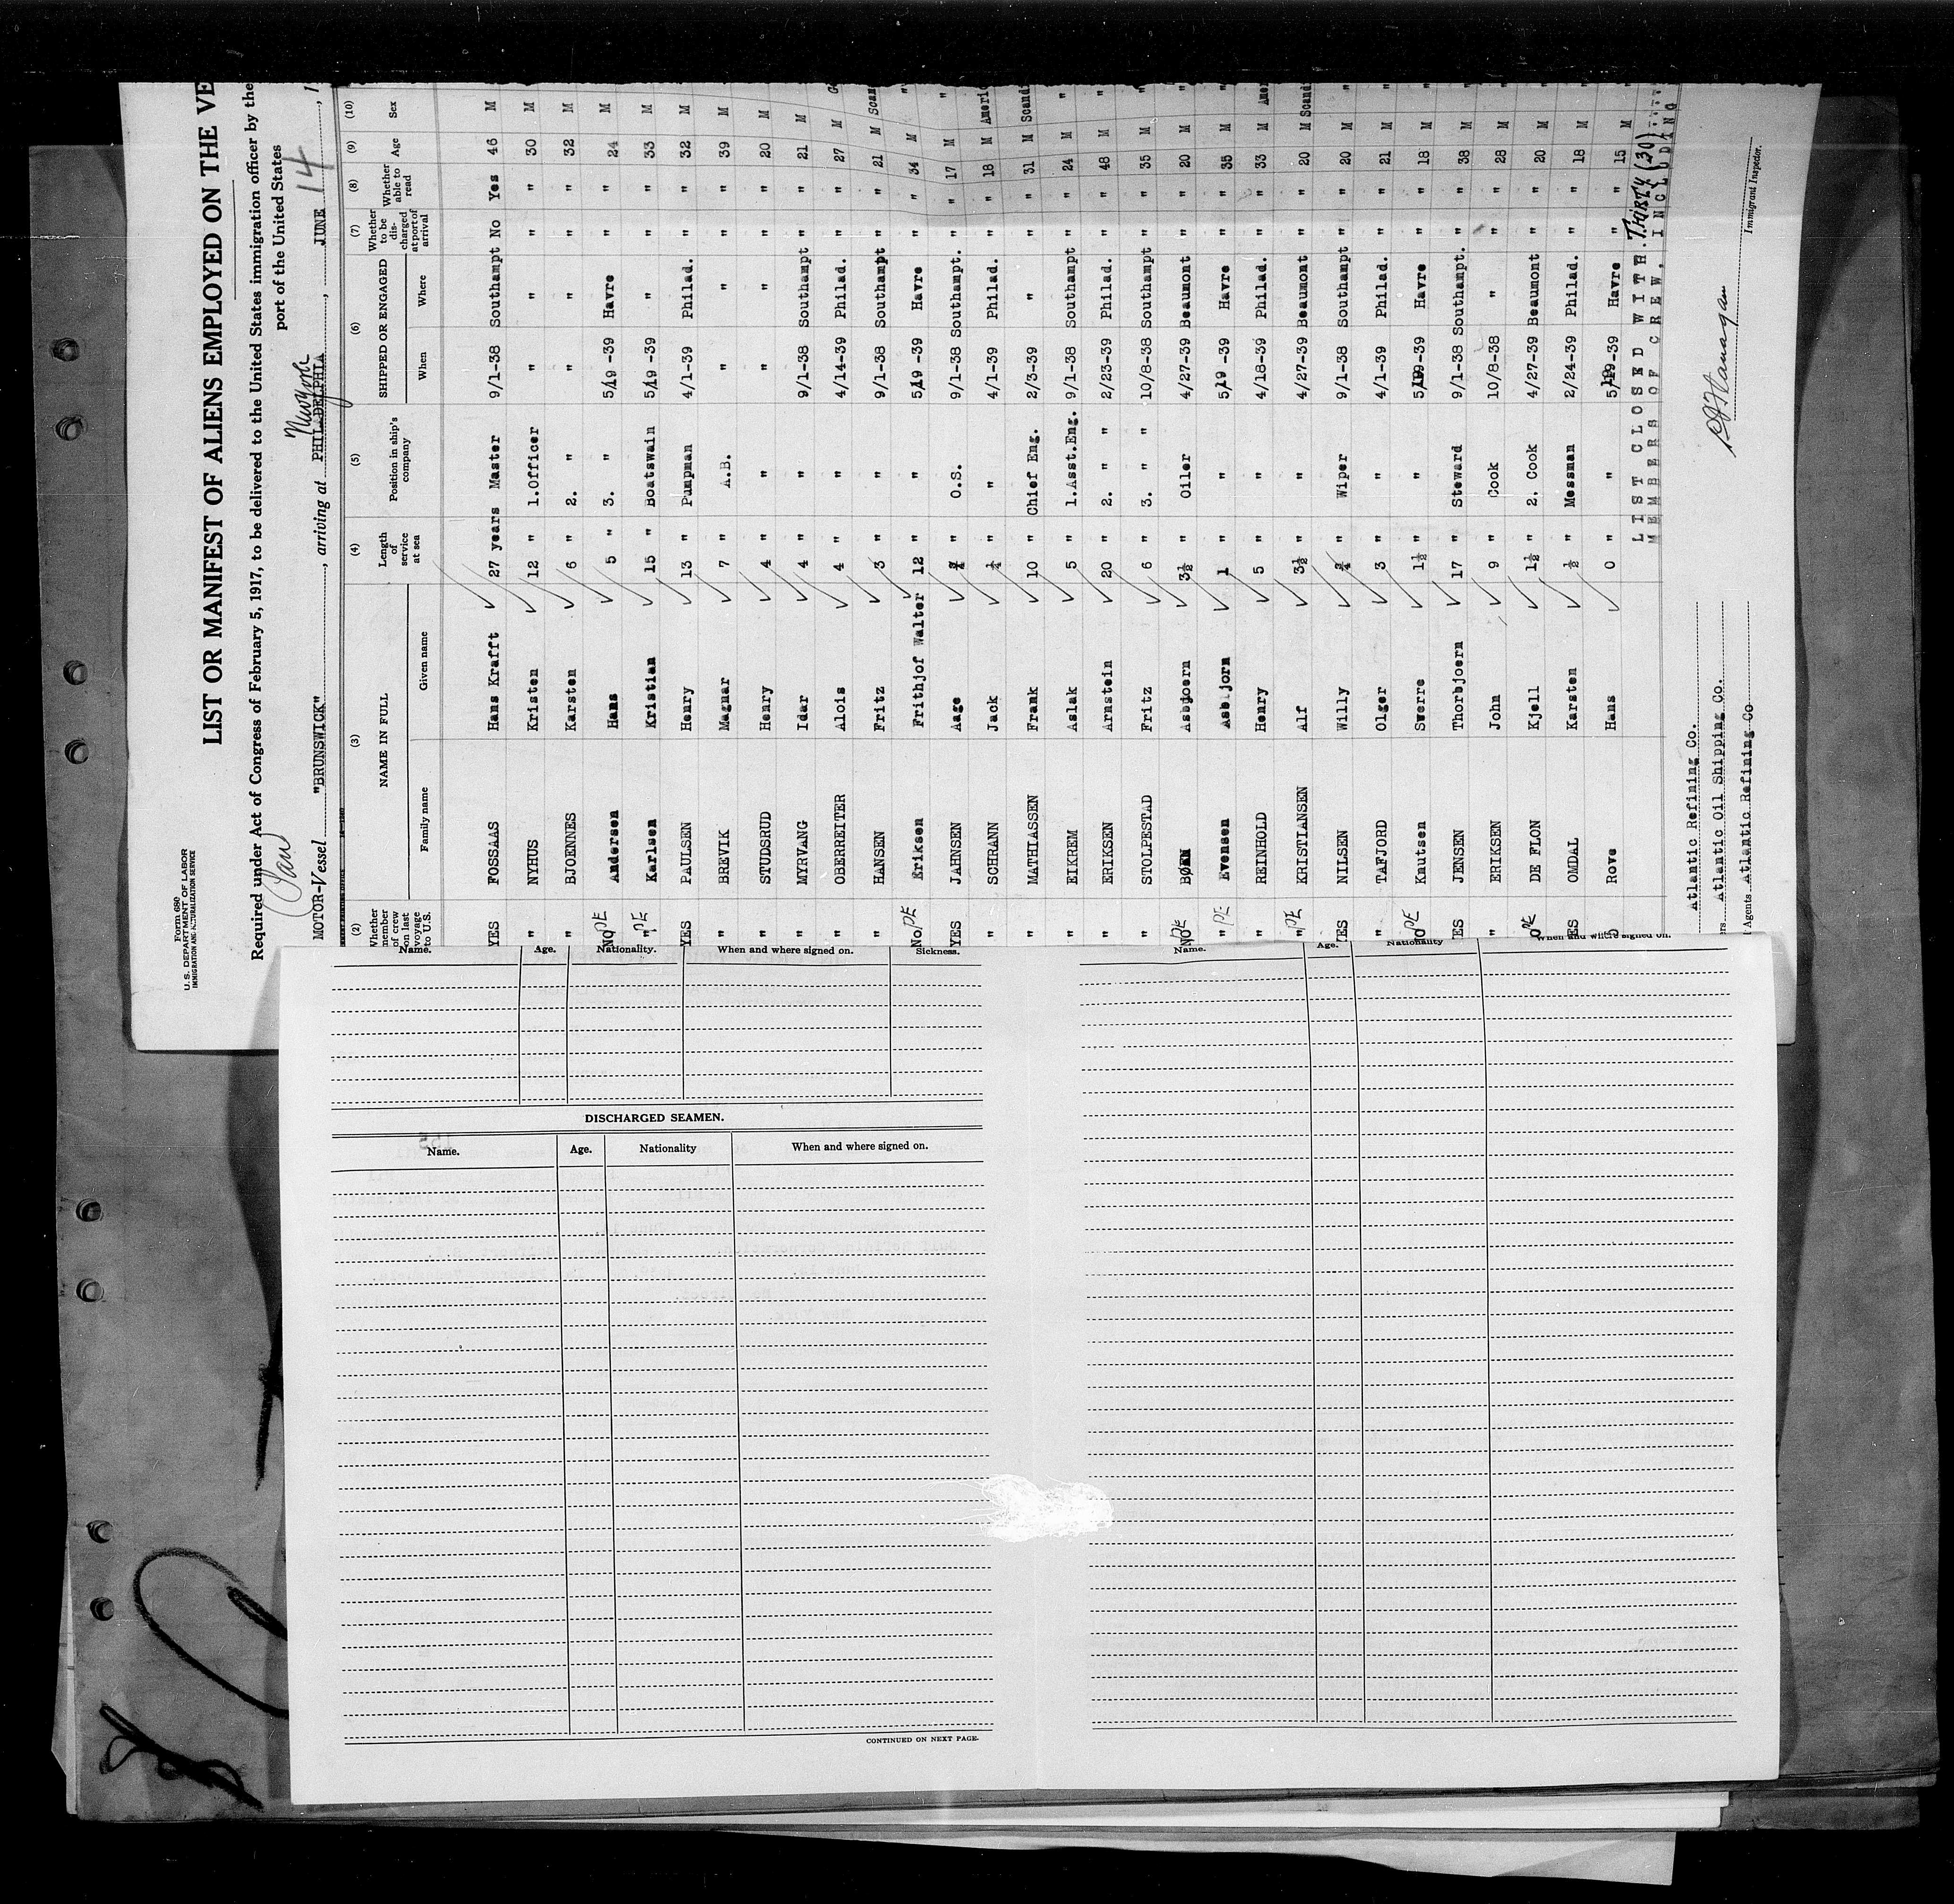 Form 680
U.S. DEPARTMENT OF LABOR
IMMIGRATION AND NATURALIZATION SERVICE
LIST OR MANIFEST OF ALIENS EMPLOYED ON THE VE
Required under Act of Congress of February 5, 1917, to be delivered to the United States immigration officer by the
port of the United States
MOTOR-Vessel "BRUNSWICK", arriving at PHILADELPHIA, JUNE 14, 1
(2) (3) (4) (5) (6) (7) (8) (9) (10)
Whether member of crew on last voyage to U.S. NAME IN FULL Length of service at sea Position in ship's company SHIPPED OR ENGAGED Whether to be discharged at port of arrival Whether able to read Age Sex
Family name Given name When Where
YES FOSSAAS Hans Krafft 27 years Master 9/1-38 Southampt No Yes 46 M
" NYHUS Kristen 12 " 1.Officer " " " " 30 M
" BJOENNES Karsten 6 " 2. " " " " " 32 M
No PE Andersen Hans 5 " 3. " 5/19-39 Havre " " 24 M
" PE Karlsen Kristian 15 " Boatswain 5/19-39 " " " 33 M
YES PAULSEN Henry 13 " Pumpman 4/1-39 Philad. " " 32 M
" BREVIK Magnar 7 " A.B. " " " " 39 M
" STUDSRUD Henry 4 " " " " " " 20 M
" MYRVANG Idar 4 " " 9/1-38 Southampt " " 21 M
" OBERREITER Alois 4 " " 4/14-39 Philad. " " 27 M G
" HANSEN Fritz 3 " " 9/1-38 Southampt " " 21 M Scan
No PE Eriksen Frithjof Walter 12 " " 5/19-39 Havre " " 34 M "
YES JAHNSEN Aage " O.S. 9/1-38 Southampt. " " 17 M "
" SCHRANN Jack ¼ " " 4/1-39 Philad. " " 18 M Americ
" MATHIASSEN Frank 10 " Chief Eng. 2/3-39 " " " 31 M Scandi
" EIKREM Aslak 5 " 1.Asst.Eng. 9/1-38 Southampt " " 24 M "
" ERIKSEN Arnstein 20 " 2. " " 2/23-39 Philad. " " 48 M "
" STOLPESTAD Fritz 6 " 3. " " 10/8-38 Southampt " " 35 M "
No PE Asbjoern 3½ " Oiler 4/27-39 Beaumont " " 20 M "
" PE Evensen Asbjorn 1 " " 5/19-39 Havre " " 35 M "
" REINHOLD Henry 5 " " 4/18-39 Philad. " " 33 M Amer
" PE KRISTIANSEN Alf 3½ " " 4/27-39 Beaumont " " 20 M Scandi
YES NILSEN Willy ¾ " Wiper 9/1-38 Southampt " " 20 M "
" TAFJORD Olger 3 " " 4/1-39 Philad. " " 21 M "
o PE Knutsen Swerre 1½ " " 5/19-39 Havre " " 18 M "
ES JENSEN Thorbjoern 17 " Steward 9/1-38 Southampt. " " 38 M "
" ERIKSEN John 9 " Cook 10/8-38 " " " 28 M "
o PE DE FLON Kjell 1½ " 2. Cook 4/27-39 Beaumont " " 20 M "
ES OMDAL Karsten ½ " Messman 2/24-39 Philad. " " 18 M "
o Rove Hans 0 " " 5/19-39 Havre " " 15 M "
LIST CLOSED WITH THIRTY (30)
MEMBERS OF CREW. INCLUDING
Atlantic Refining Co.
rs Atlantic Oil Shipping Co.
Agents Atlantic Refining Co
Immigrant Inspector.
Name. Age. Nationality. When and where signed on. Sickness.
DISCHARGED SEAMEN.
Name. Age. Nationality When and where signed on.
CONTINUED ON NEXT PAGE.
Name. Age. Nationality When and where signed on.